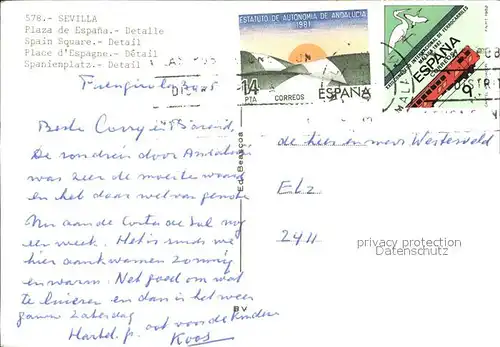 578.- SEVILLA
Plaza de España.- Detalle
Spain Square.- Detail
Place d'Espagne.- Détail
Spanienplatz.- Detail
ESTATUTO DE AUTONOMIA DE ANDALUCIA
1981
14
PTA
CORREOS
ESPAÑA
ESPAÑA
Beste Corry en
De rondreis door Andalusie
was zeer de moeite waard
en het daar wel van genote
Nu aan de Costa de Sol nog
een week. Het is sinds we
hier aankwamen zonnig
en warm. Net goed om wat
te luieren en dan is het weer
gauw Zaterdag
Hartel. gr. ook voor de kinderen
Koos
Ed. Beascoa
BV
de heer en mevr Westerveld
Elz
2411
privacy protection
Datenschutz